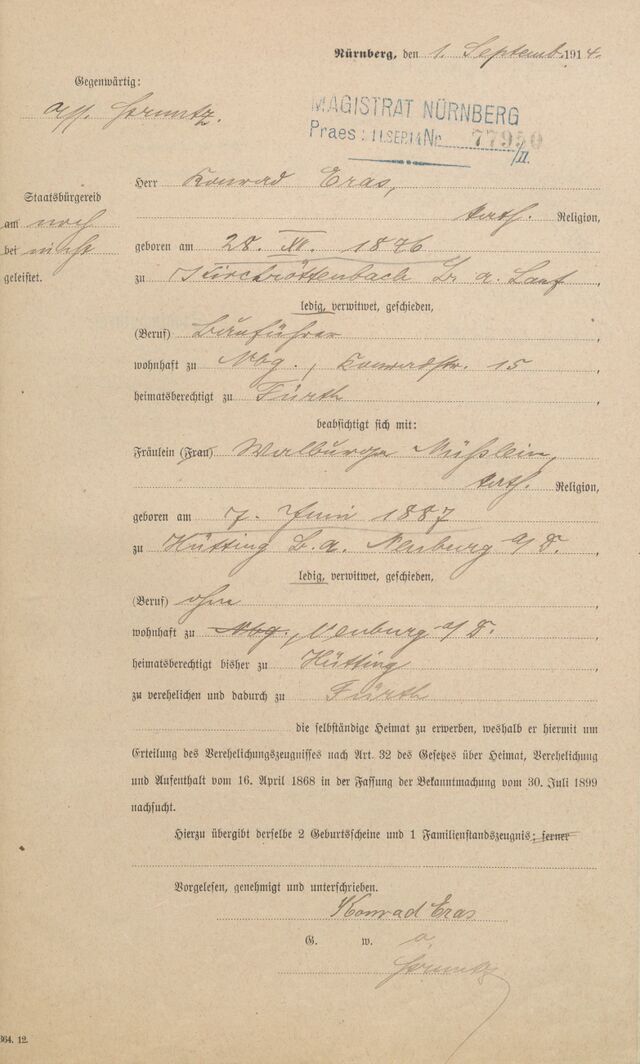 Nürnberg, den 1. Septemb. 1914.
Gegenwärtig:
MAGISTRAT NÜRNBERG
Praes: 11.SEP.14 Nr. 77950
/II.
Herr Konrad Eras,
Staatsbürgereid
am noch
kath. Religion,
bei nicht
geboren am 28. XI. 1876
geleistet.
zu Kirchröttenbach B. a. Lauf,
ledig, verwitwet, geschieden,
(Beruf) Bauführer,
wohnhaft zu Nbg., Konradstr. 15,
heimatsberechtigt zu Fürth,
beabsichtigt sich mit:
Fräulein (Frau) Walburga Müßlein,
kath. Religion,
geboren am 7. Juni 1887
zu Hütting B. a. Neuburg a/D.,
ledig, verwitwet, geschieden,
(Beruf) ohne,
wohnhaft zu Nbg., Neuburg a/D.,
heimatsberechtigt bisher zu Hütting
zu verehelichen und dadurch zu Fürth
die selbständige Heimat zu erwerben, weshalb er hiermit um
Erteilung des Verehelichungszeugnisses nach Art. 32 des Gesetzes über Heimat, Verehelichung
und Aufenthalt vom 16. April 1868 in der Fassung der Bekanntmachung vom 30. Juli 1899
nachsucht.
Hierzu übergibt derselbe 2 Geburtscheine und 1 Familienstandszeugnis; ferner
Vorgelesen, genehmigt und unterschrieben.
Konrad Eras
G. w. o.
364. 12.